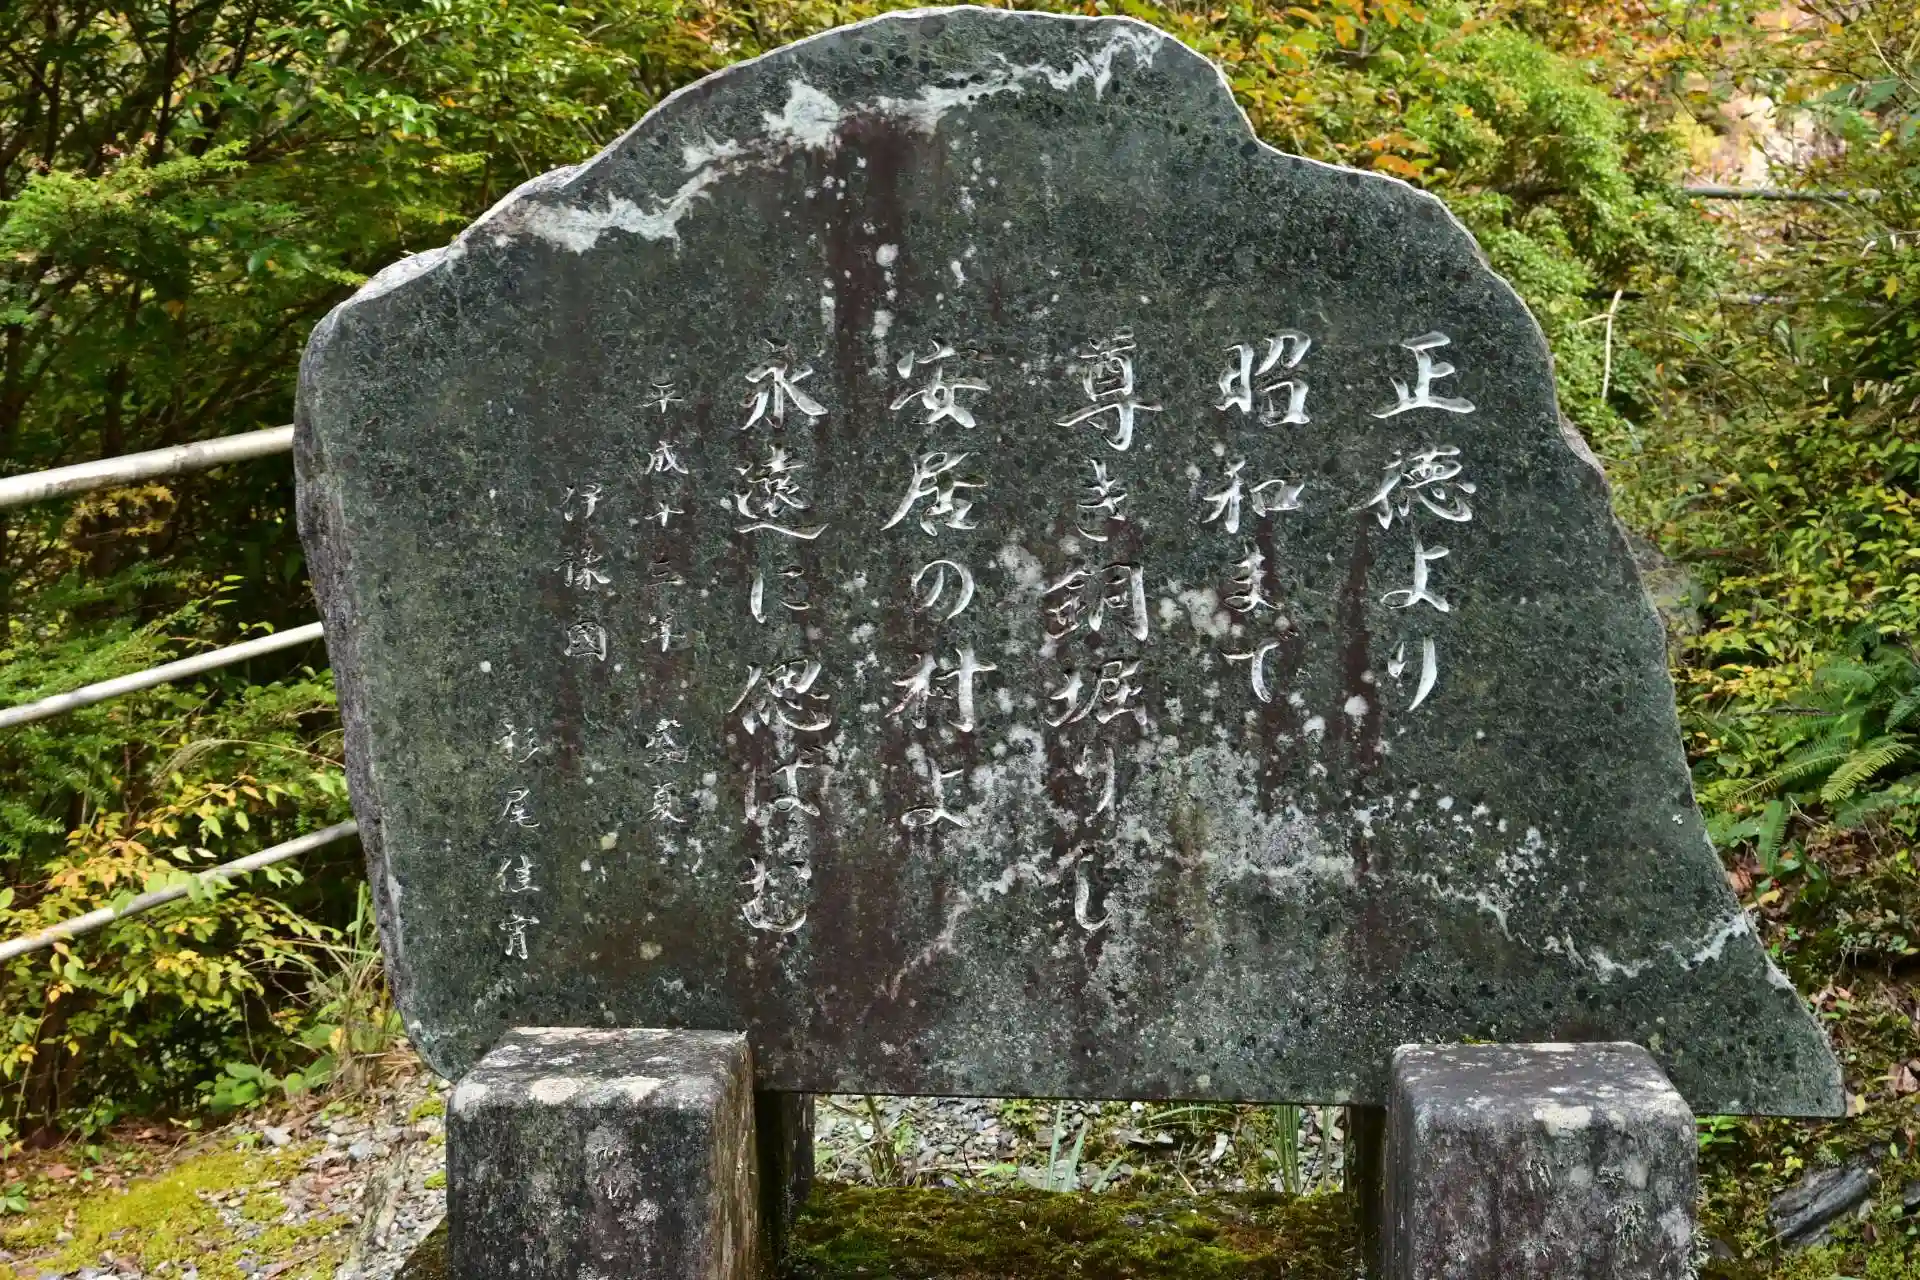 正徳より
昭和まで
尊き銅堀りし
安居の村よ
永遠に偲ばむ
平成十三年 盛夏
伊豫國
杉尾佳宵